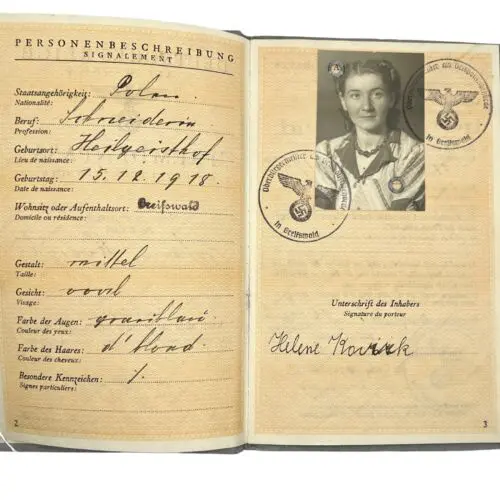 PERSONENBESCHREIBUNG
SIGNALEMENT
Staatsangehörigkeit: Polen
Nationalité:
Beruf: Schneiderin
Profession:
Geburtsort: Heilgeisthof
Lieu de naissance:
Geburtstag: 15.12.1918.
Date de naissance:
Wohnsitz oder Aufenthaltsort: Greifswald
Domicile ou résidence:
Gestalt: mittel
Taille:
Gesicht: oval
Visage:
Farbe der Augen:
Couleur des yeux:
Farbe des Haares: d'blond
Couleur des cheveux:
Besondere Kennzeichen: ⁒
Signes particuliers:
2
in Greifswald
in Greifswald
Unterschrift des Inhabers
Signature du porteur
Helene
3